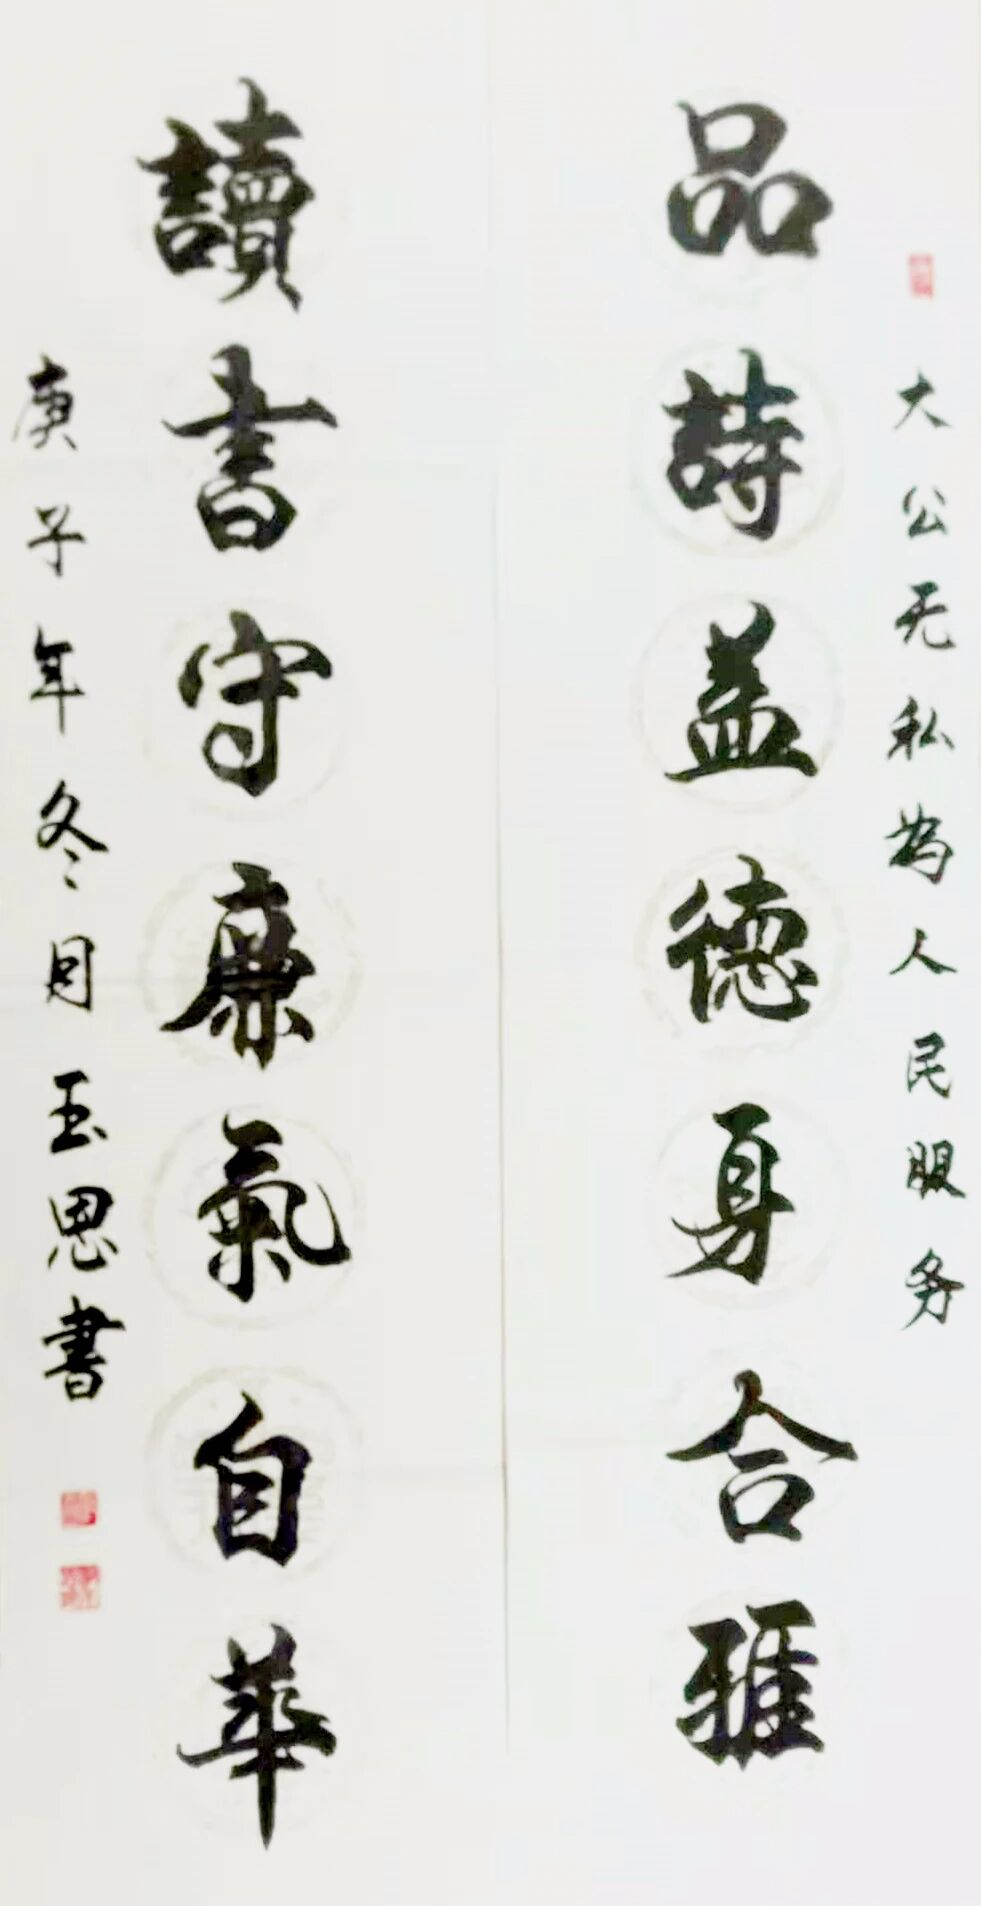 大公无私为人民服务
品詩益德身合雅
讀書守廉氣自華
庚子年冬月玉恩書